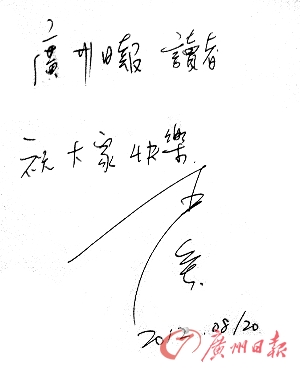 廣州日報 讀者
祝大家快樂
2012.08/20
廣州日報